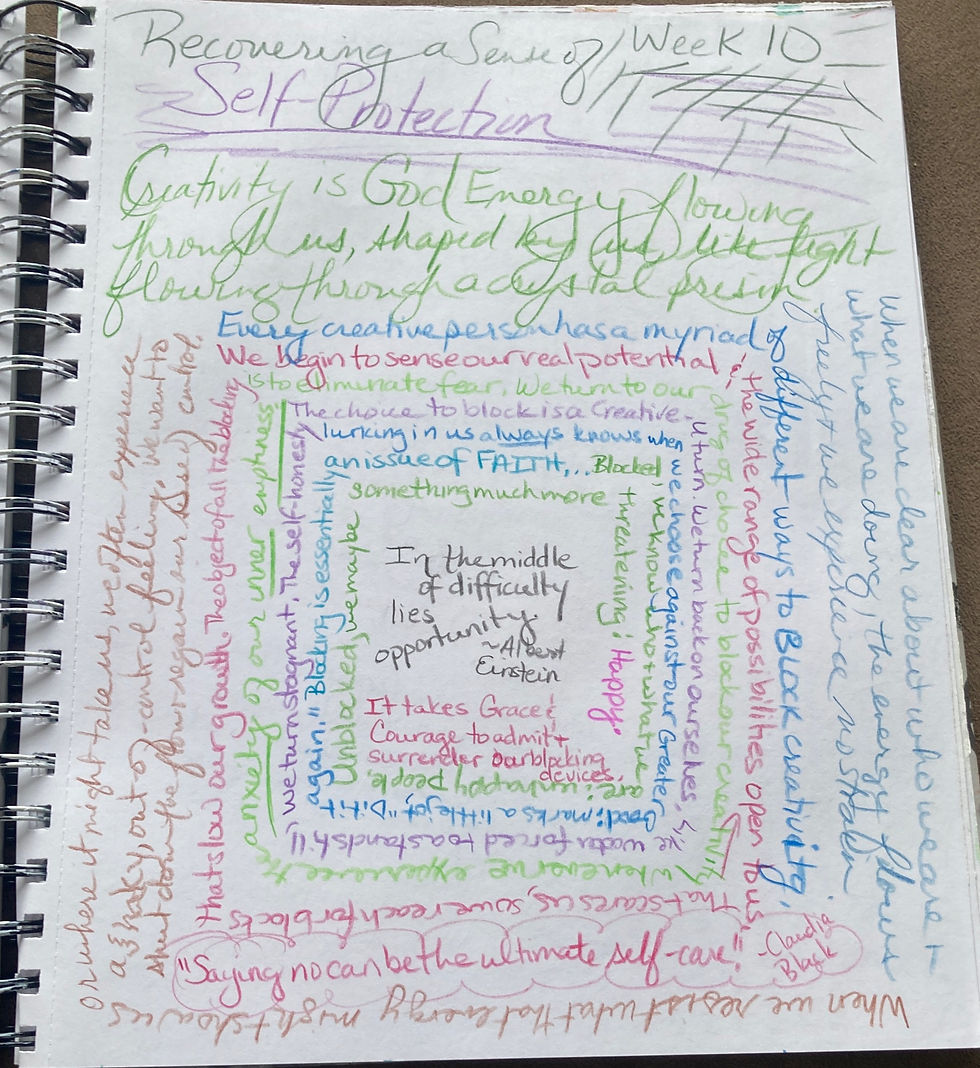 Recovering a Sense of
Week 10
Self-Protection
Creativity is God Energy flowing
through us, shaped by us, like light
flowing through a crystal prism
When we are clear about who we are &
what we are doing, the energy flows
freely & we experience no strain
When we resist what that energy might show us
or where it might take us, we often experience
a shaky, out-of-control feeling. We want to
shut down the flow & regain our sense of control.
Every creative person has a myriad of
different ways to Block creativity.
We begin to sense our real potential &
the wide range of possibilities open to us.
That scares us, so we reach for blocks
that slow our growth. The object of all the blocking
is to eliminate fear. We turn to our
drug of choice to block our creativity
whenever we experience the
anxiety of our inner emptiness.
The choice to block is a Creative-
U turn. We turn back on ourselves,
like water forced to a standstill,
we turn stagnant. The self-honesty
lurking in us always knows when
we choose against our Greater
Good; marks a little jot, "Did it
again." Blocking is essentially
an issue of FAITH,...
Blocked, we know who & what we
are: unhappy people,
Unblocked, we may be
something much more
threatening: Happy.
In the middle
of difficulty
lies
opportunity.
~Albert
Einstein
It takes Grace &
Courage to admit &
surrender our blocking
devices.
"Saying no can be the ultimate self-care."
-Claudia
Black